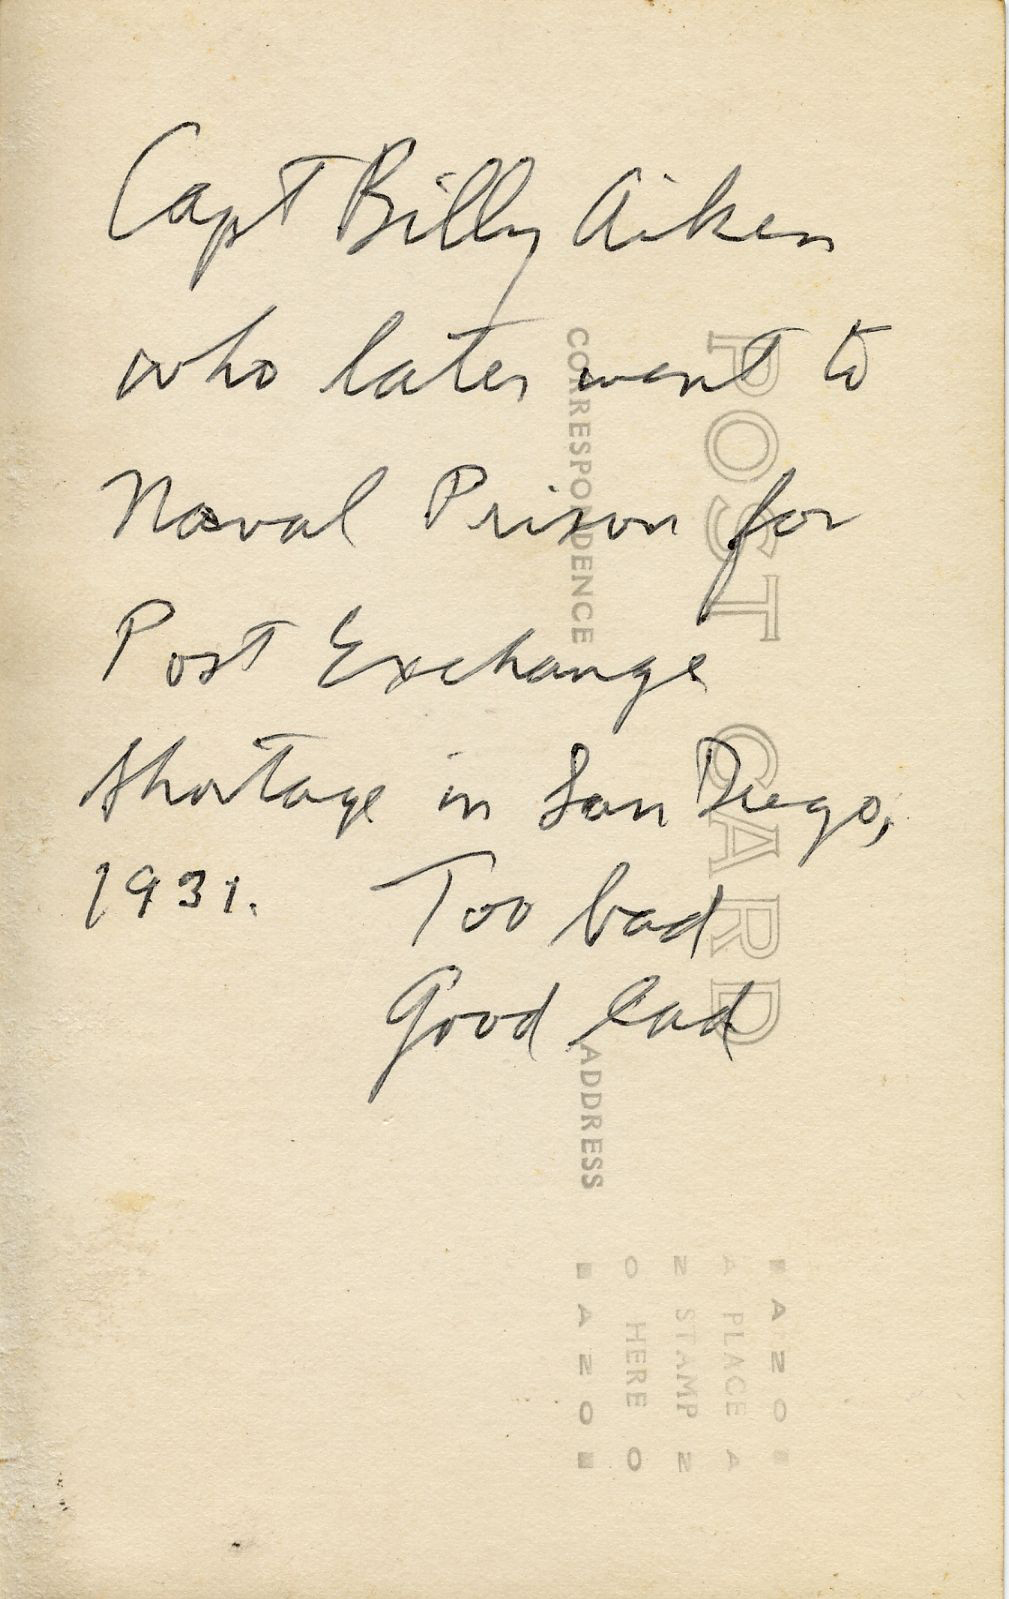 Capt Billy Aiken
who later went to
Naval Prison for
Post Exchange
Shortage in San Diego,
1931. Too bad
Good lad
POST CARD
CORRESPONDENCE
ADDRESS
■ A Z O ■
A PLACE A
Z STAMP Z
O HERE O
■ A Z O ■